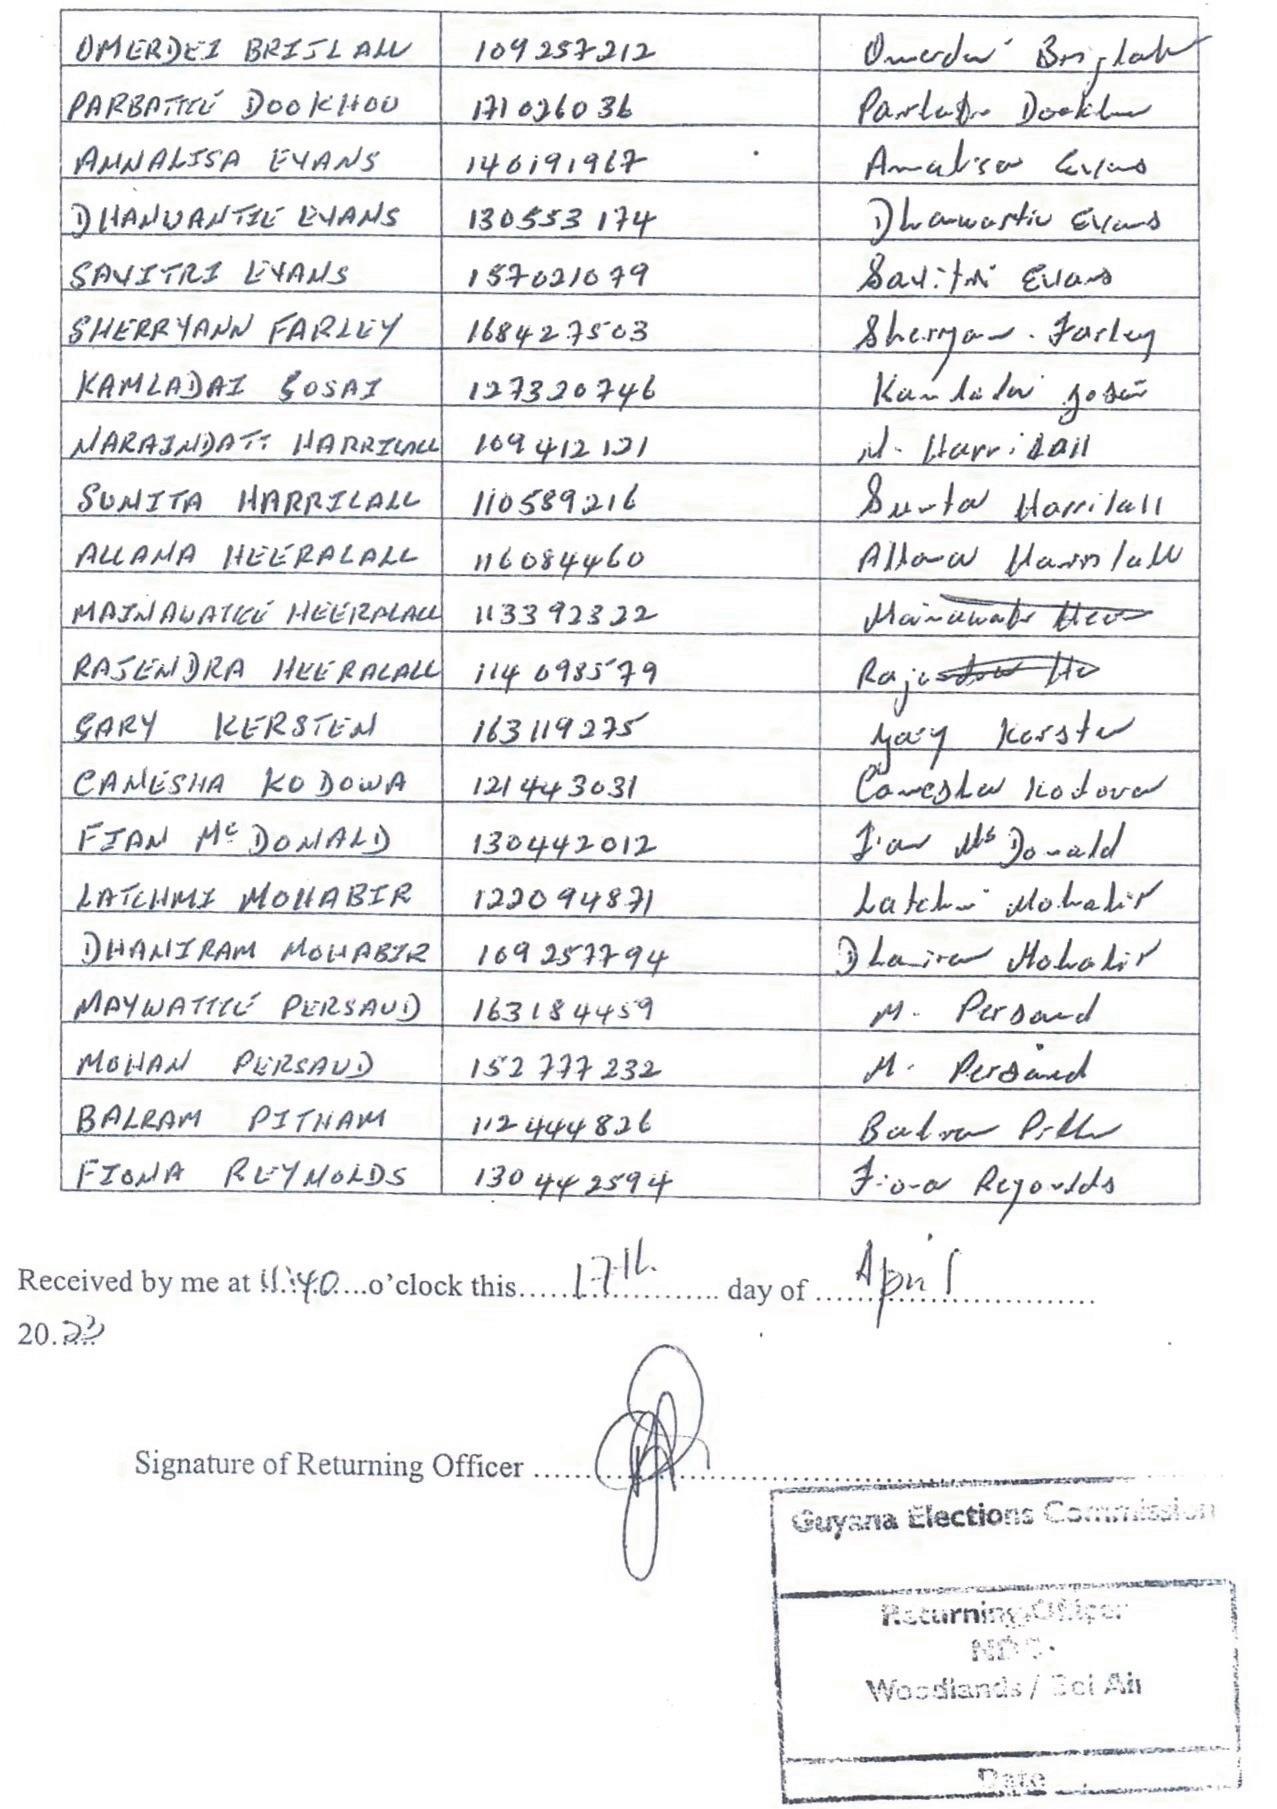 OMERDEI BRIJLALL 109257212 Omerdei Brijlall
PARBATTIE DOOKHOO 171026036 Dookhoo
ANNALISA EVANS 140191967 Annalisa Evans
DHANWANTIE EVANS 130553174 Dhanwantie Evans
SAVITRI EVANS 157021079 Savitri Evans
SHERRYANN FARLEY 168427503 Sherryann Farley
KAMLADAI GOSAI 127320746 Kamladai Gosai
NARAINDATT HARRILALL 109412121 N. Harrilall
SUNITA HARRILALL 110589216 Sunita Harrilall
ALLANA HEERALALL 116084460 Allana
MAINAWATIE HEERALALL 113392322 Mainawatie
RAJENDRA HEERALALL 114098579
GARY KERSTEN 163119275 Gary Kersten
CANESHA KODOWA 121443031 Canesha Kodowa
FIAN McDONALD 130442012 Fian McDonald
LATCHMI MOHABIR 122094871 Latchmi Mohabir
DHANIRAM MOHABIR 169257794 Dhaniram Mohabir
MAYWATTIE PERSAUD 163184459 M. Persaud
MOHAN PERSAUD 152777232 M. Persaud
BALRAM PITHAM 112444826 Balram
FIONA REYNOLDS 130442594 Fiona Reynolds
Received by me at 11:40....o'clock this......17th........... day of ......April..................
20..23
Signature of Returning Officer ..............................................
Guyana Elections Commission
Returning Officer
NDC
Woodlands / Bel Air
Date